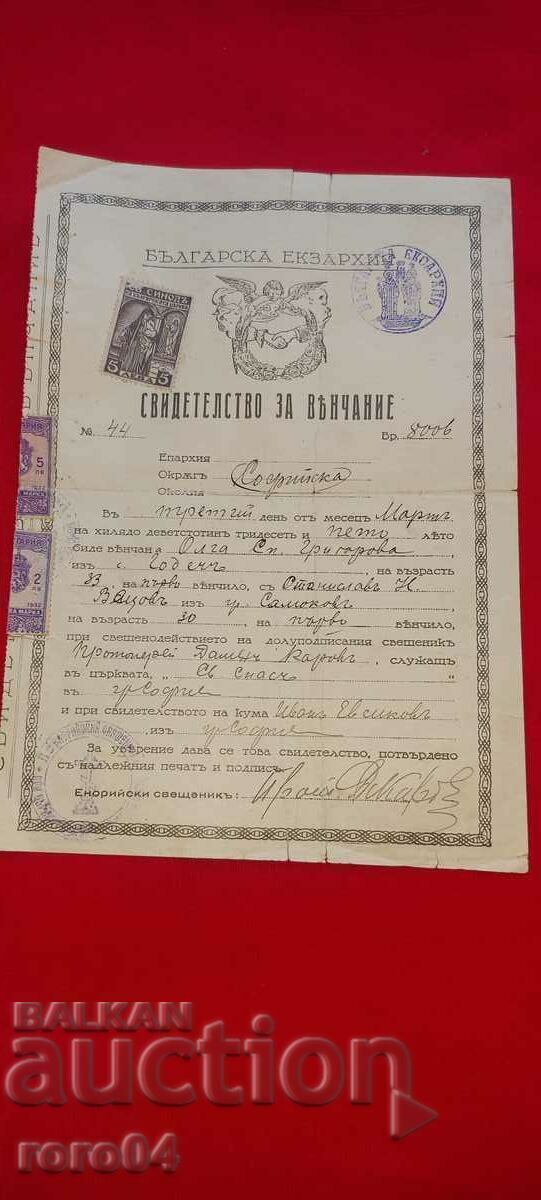 БЪЛГАРСКА ЕКЗАРХИЯ
БЪЛГАРСКА ЕКСАРХИЯ
СИНОДЪ
5 ЛЕВА 5
СВИДЕТЕЛСТВО ЗА ВѢНЧАНИЕ
№ 44 Бр. 8006
Епархия
Окрѫгъ Софийска
Околия
Въ третий день отъ месецъ Мартъ
на хилядо деветстотинъ тридесеть и пето лѣто
биде вѣнчана Олга Сп. Григорова
изъ с. Годечъ, на възрасть
23, на първо вѣнчило, съ Станиславъ Н.
Вацовъ изъ гр. Самоковъ
на възрасть 30 на първо вѣнчило,
при свещенодействието на долуподписания свещеникъ
Протоиерей Каровъ, служащъ
въ църквата, „Св. Спасъ“
въ гр. София
и при свидетелството на кума Иванъ Евтимовъ
изъ гр. София
За уверение дава се това свидетелство, потвърдено
съ надлежния печатъ и подписъ.
Енорийски свещеникъ:
5
ЛВ
2
ЛВ
1932
BALKAN
auction
roro04